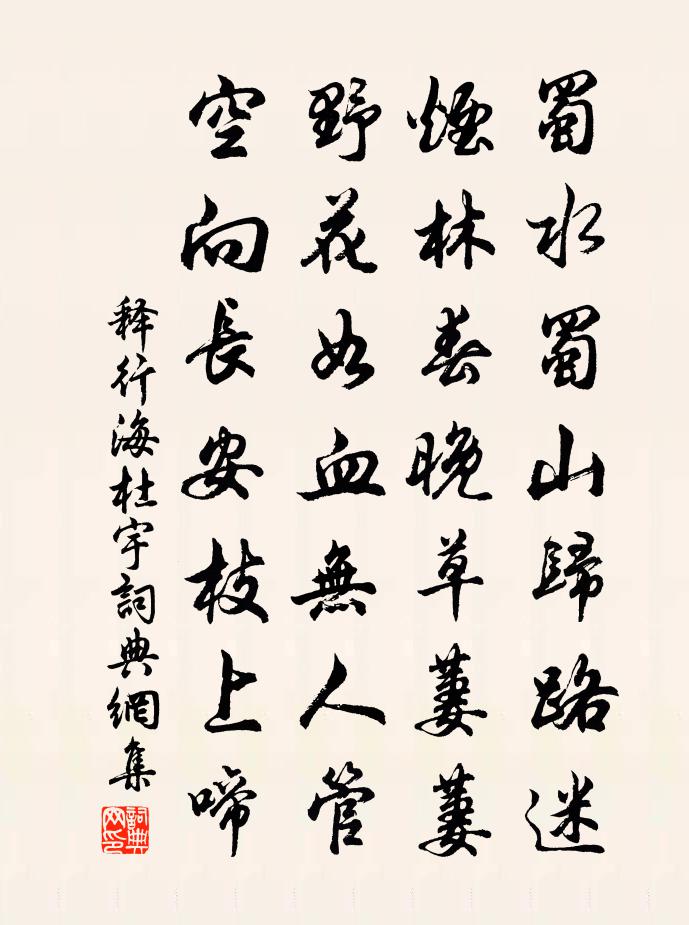 蜀水蜀山歸路迷
煙林春晚草萋萋
野花如血無人管
空向長安枝上啼
释行海杜宇詞典網集
詞典网印